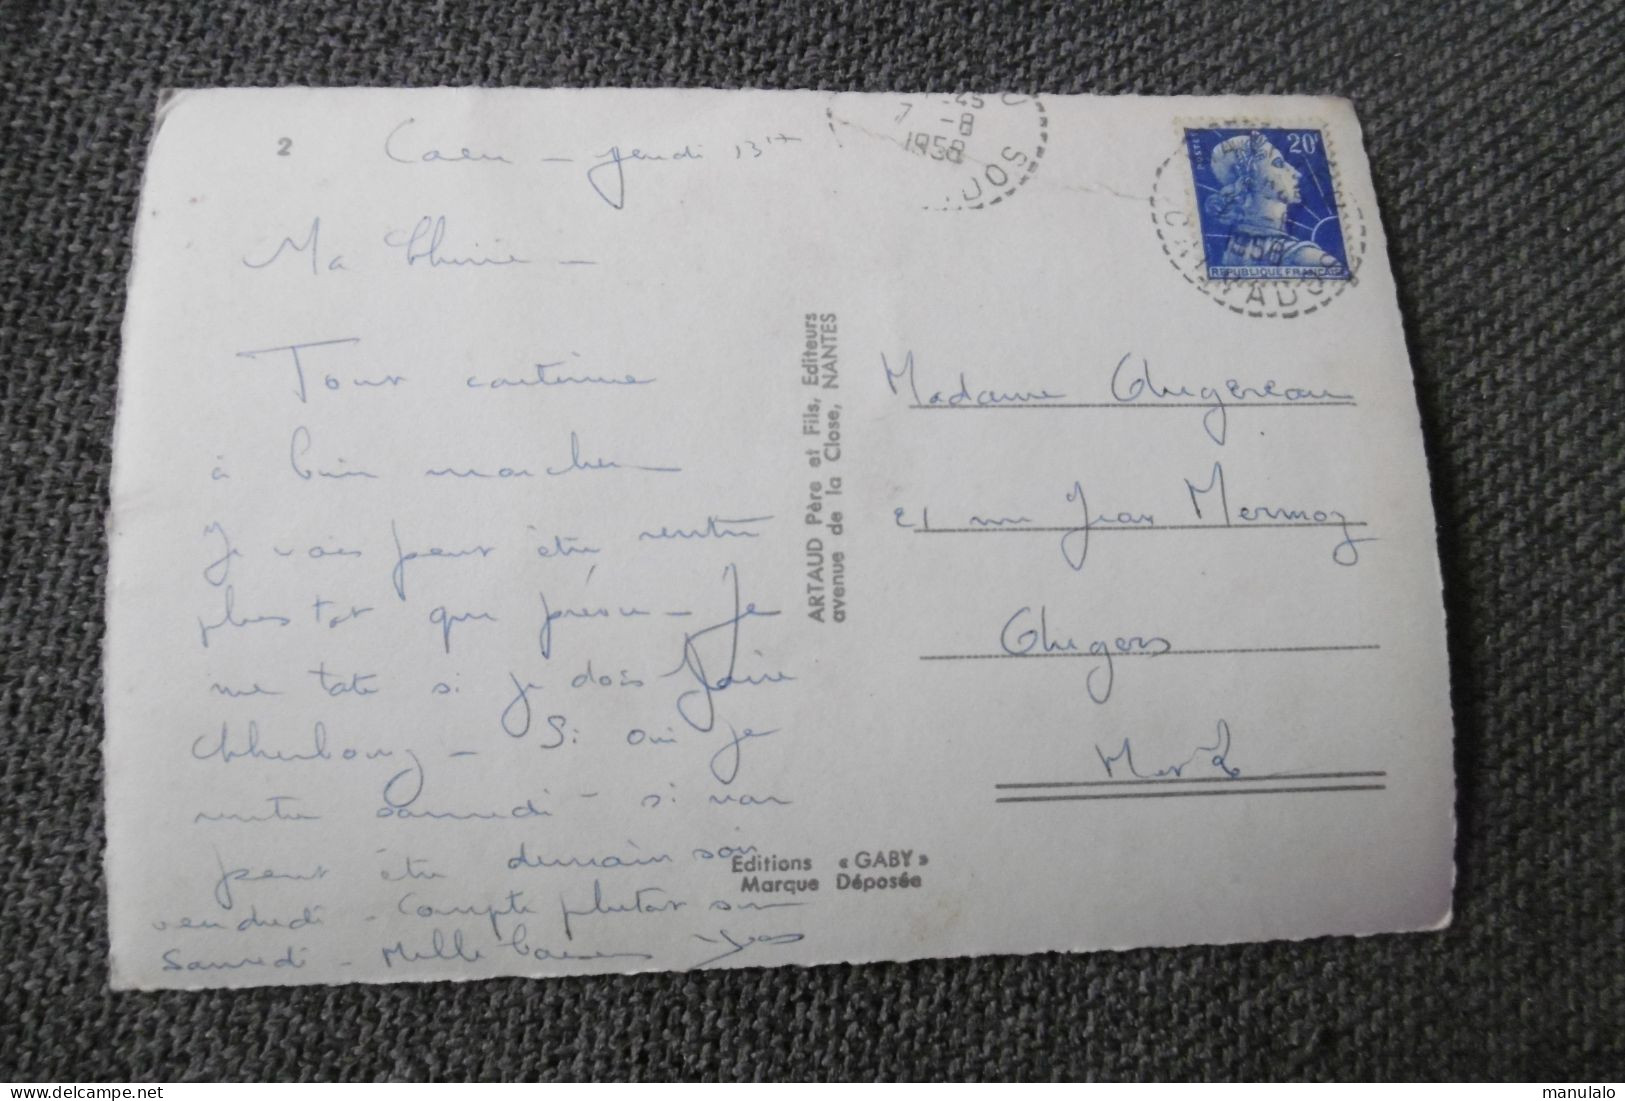 2
Caen - jeudi 13H
Ma Chérie -
Tout continue
à bien marcher
Je vais peut être rentrer
plus tot que prévu - Je
me tate si je dois faire
Cherbourg - Si oui je
rentre samedi - si non
peut être demain soir
vendredi - Compte plutot sur
Samedi - Mille baisers
ARTAUD Père et Fils, Editeurs
avenue de la Close, NANTES
Editions « GABY »
Marque Déposée
7 -8
1958
DOS
POSTES
20F
1958
REPUBLIQUE FRANÇAISE
CALVADOS
Madame
21 rue Jean Mermoz
Angers
M et L
manulalo
delcampe.net